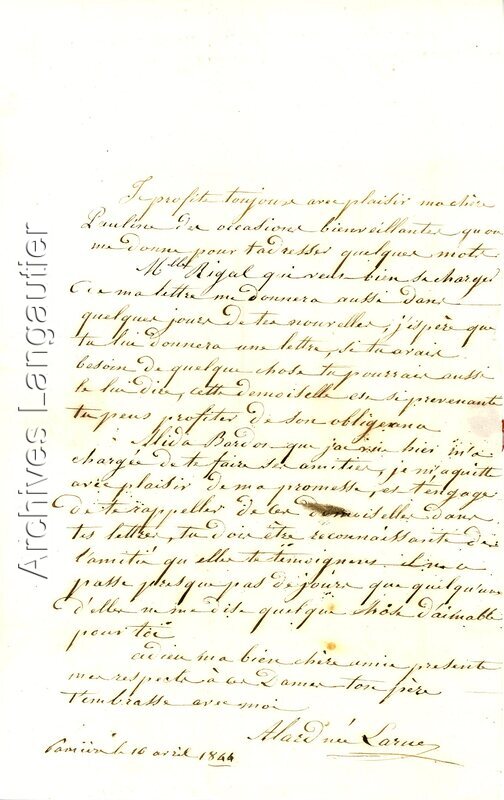 Je profite toujours avec plaisir ma chère
Pauline des occasions bienveillantes qu'on
me donne pour t'adresser quelques mots.
Melle Rigal qui veut bien se charger
de ma lettre me donnera aussi dans
quelques jours de tes nouvelles, j'espère que
tu lui donnera une lettre, si tu avais
besoin de quelque chose tu pourrais aussi
le lui dire, cette demoiselle est si prevenante
tu peus profiter de son obligeance
Mida Bardon que j'ai vue hier m'a
chargée de te faire ses amitiés, je m'aquitte
avec plaisir de ma promesse, et t'engage
de te rappeller de ces demoiselles dans
tes lettres, tu dois être reconnaissant de
l'amitié qu'elles te témoignent il ne
passe presque pas de jours que quelqu'une
d'elles ne me dise quelque chose d'aimable
pour toi
adieu ma bien chère amie presente
mes respects à ces Dames ton père
t'embrasse avec moi
Alard née Larue
le 16 avril 1844
Archives Langautier